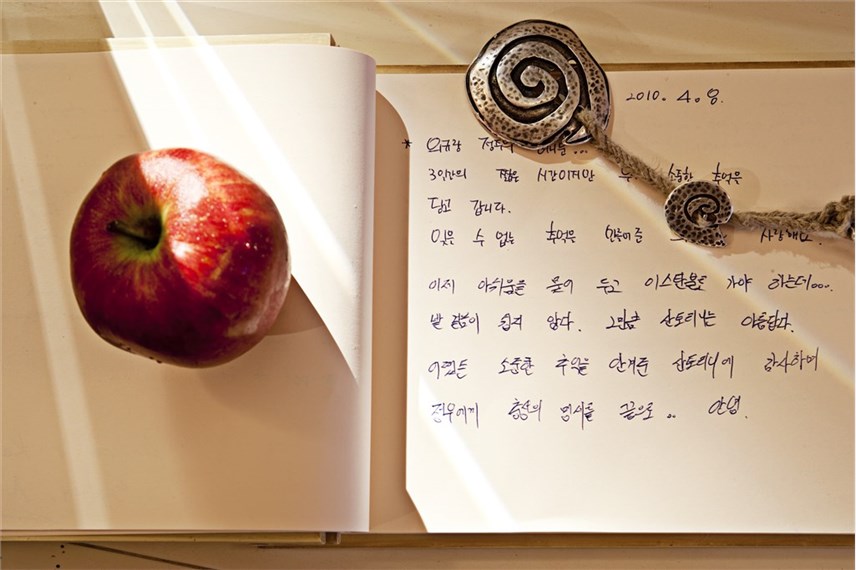 2010. 4. 8.
* 오규랑 정우의
3일간의 짧은 시간이지만 소중한 추억은
담고 갑니다.
잊을 수 없는 추억은 만들어준 사랑해요.
이제 아쉬움을 묻어 두고 이스탄불로 가야 하는데...
발걸음이 쉽지 않다. 그만큼 산토리니는 아름답다.
어쨌든 소중한 추억을 안겨준 산토리니에 감사하며
정우에게 충성의 맹세를 끝으로 .. 안녕.